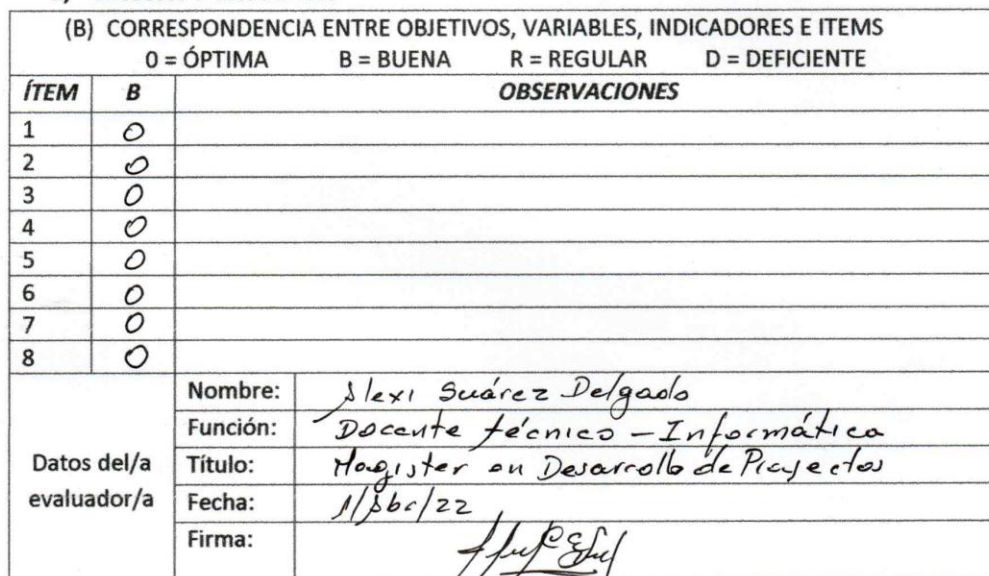 (B) CORRESPONDENCIA ENTRE OBJETIVOS, VARIABLES, INDICADORES E ITEMS
0 = ÓPTIMA B = BUENA R = REGULAR D = DEFICIENTE
ÍTEM B OBSERVACIONES
1 O
2 O
3 O
4 O
5 O
6 O
7 O
8 O
Datos del/a evaluador/a
Nombre: Alexi Suárez Delgado
Función: Docente técnico - Informática
Título: Magister en Desarrollo de Proyectos
Fecha: 1/Abr/22
Firma: